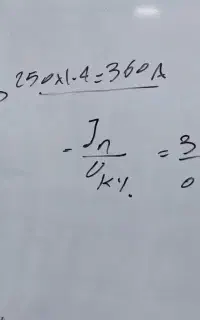 250x1.4=360A
- Jn / Uk% = 3 / 0